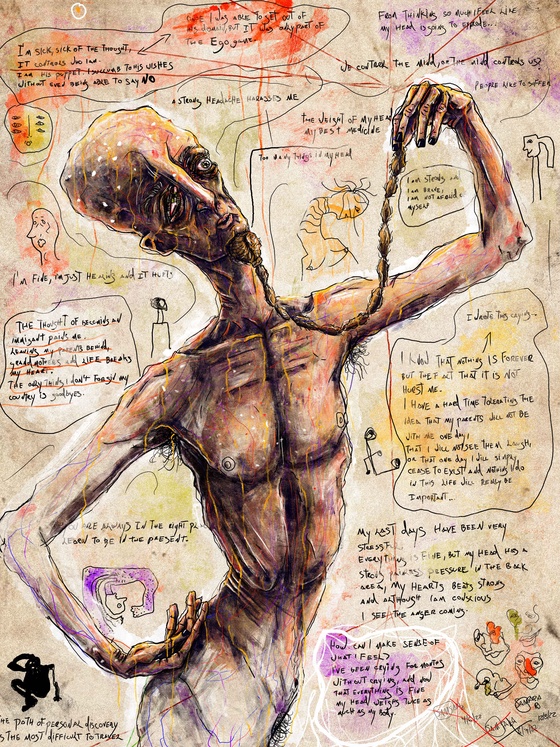 I'm sick, sick of the thought,
it controls who I am.
I am his puppet, I succumb to his wishes
without even being able to say NO
Once I was able to get out of
my , but it was only part of
the Ego game
From thinking so much I feel like
my head is going to explode...
we control the mind, or the mind controls us?
People like to suffer
A strong headache harasses me
the weight of my head
my best medicine
Too many things in my head
I am strong
I am brave,
I am not afraid of
myself
I'm fine, I'm just healing and it hurts
The thought of becoming an
immigrant pains me.
Leaving my parents behind,
grandmothers and life breaks
my heart.
The only thing I don't forgive my
country is goodbyes.
I wrote this crying...
I know that nothing is forever
but the fact that it is not
hurst me.
I have a hard time tolerating the
idea that my parents will not be
with me one day,
that I will not see them laugh,
or that one day I will simply
cease to exist and nothing I do
in this life will really be
important...
You are always in the right
learn to be in the present.
My last days have been very
stressful.
Everything is fine, but my head has a
strong pressure in the back
area, my hearts beats strong
and although I am conscious
I see the anger coming.
How can I make sense of
what I feel?
I've been crying for months
without crying, and now
that everything is fine
my head weighs twice as
much as my body.
The path of personal discovery
is the most difficult to travel